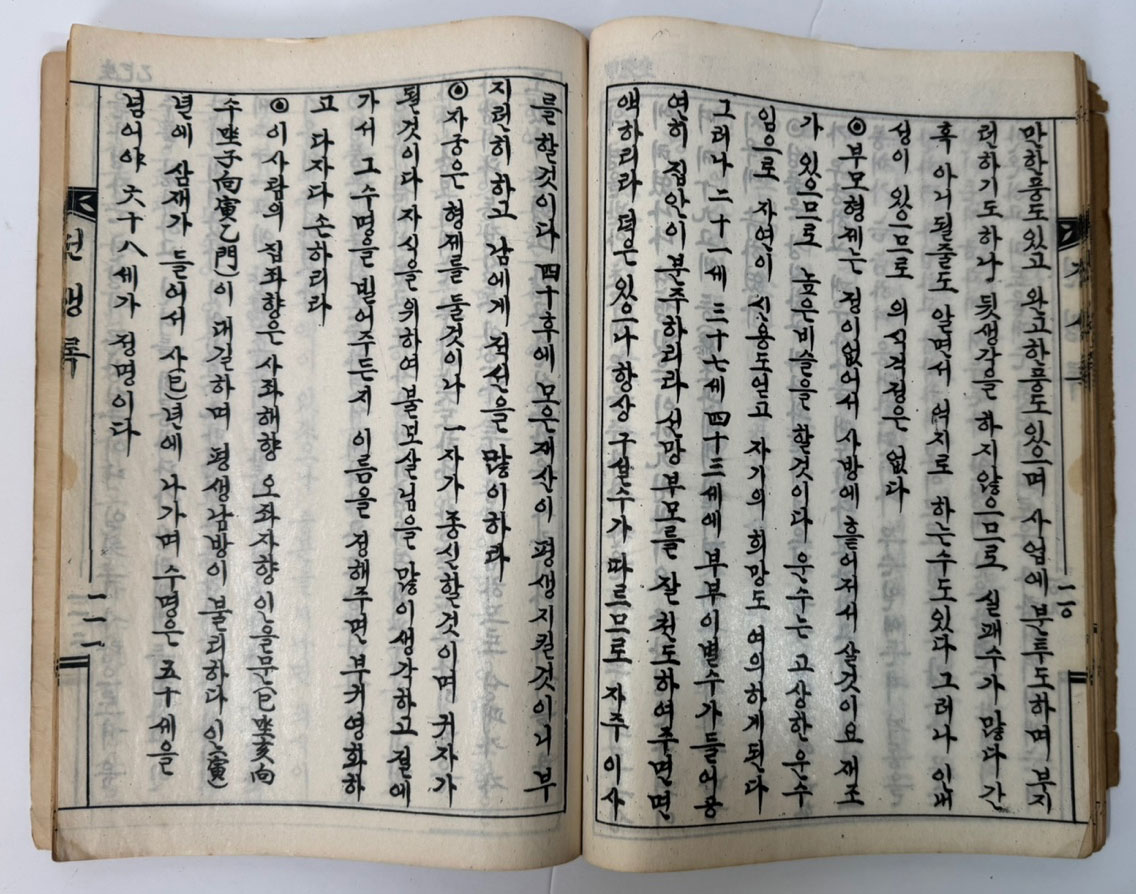 만한풍도있고 완고한풍도있으며 사업에부투도하며 부지
런하기도하나 뒷생각을 하지않으므로 실패수가 많다 간
혹 아니될줄도 알면서 억지로 하는수도있다 그러나 인내
성이 있으므로 의식걱정은 없다
◎부모형제는 정이없어서 사방에 흩어저서 살것이요 재조
가 있으므로 높은비슬을 할것이다 운수는 고상한운수
임으로 자연이 신용도얻고 자기의 희망도 여의하게된다
그러나 二十一세 三十七세 四十三세에 부부이별수가들어공
연히 집안이분주하리라 선망부모를 잘 천도하여주면 면
액하리라 덕은있으나 항상 구설수가 따르므로 자주 이사
를 할것이다 四十후에 모은재산이 평생지킬것이니 부
지런히 하고 남에게 적선을 많이하라
◎자궁은 형제를 둘것이나 一자가 종신할것이며 귀자가
될것이다 자식을 위하여 불보살님을 많이생각하고 절에
가서 그수명을 빌어주든지 이름을 정해주면 부귀영화하
고 다자다손하리라
◎이사람의 집좌향은 사좌해향 오좌자향 인을문(巳坐亥向
午坐子向寅乙門)이 대길하며 평생남방이 불리하다 인(寅)
년에 삼재가 들어서 사(巳)년에 나가며 수명은 五十세을
넘어야 六十八세가 정명이다
전생록
二一
전생록
二〇